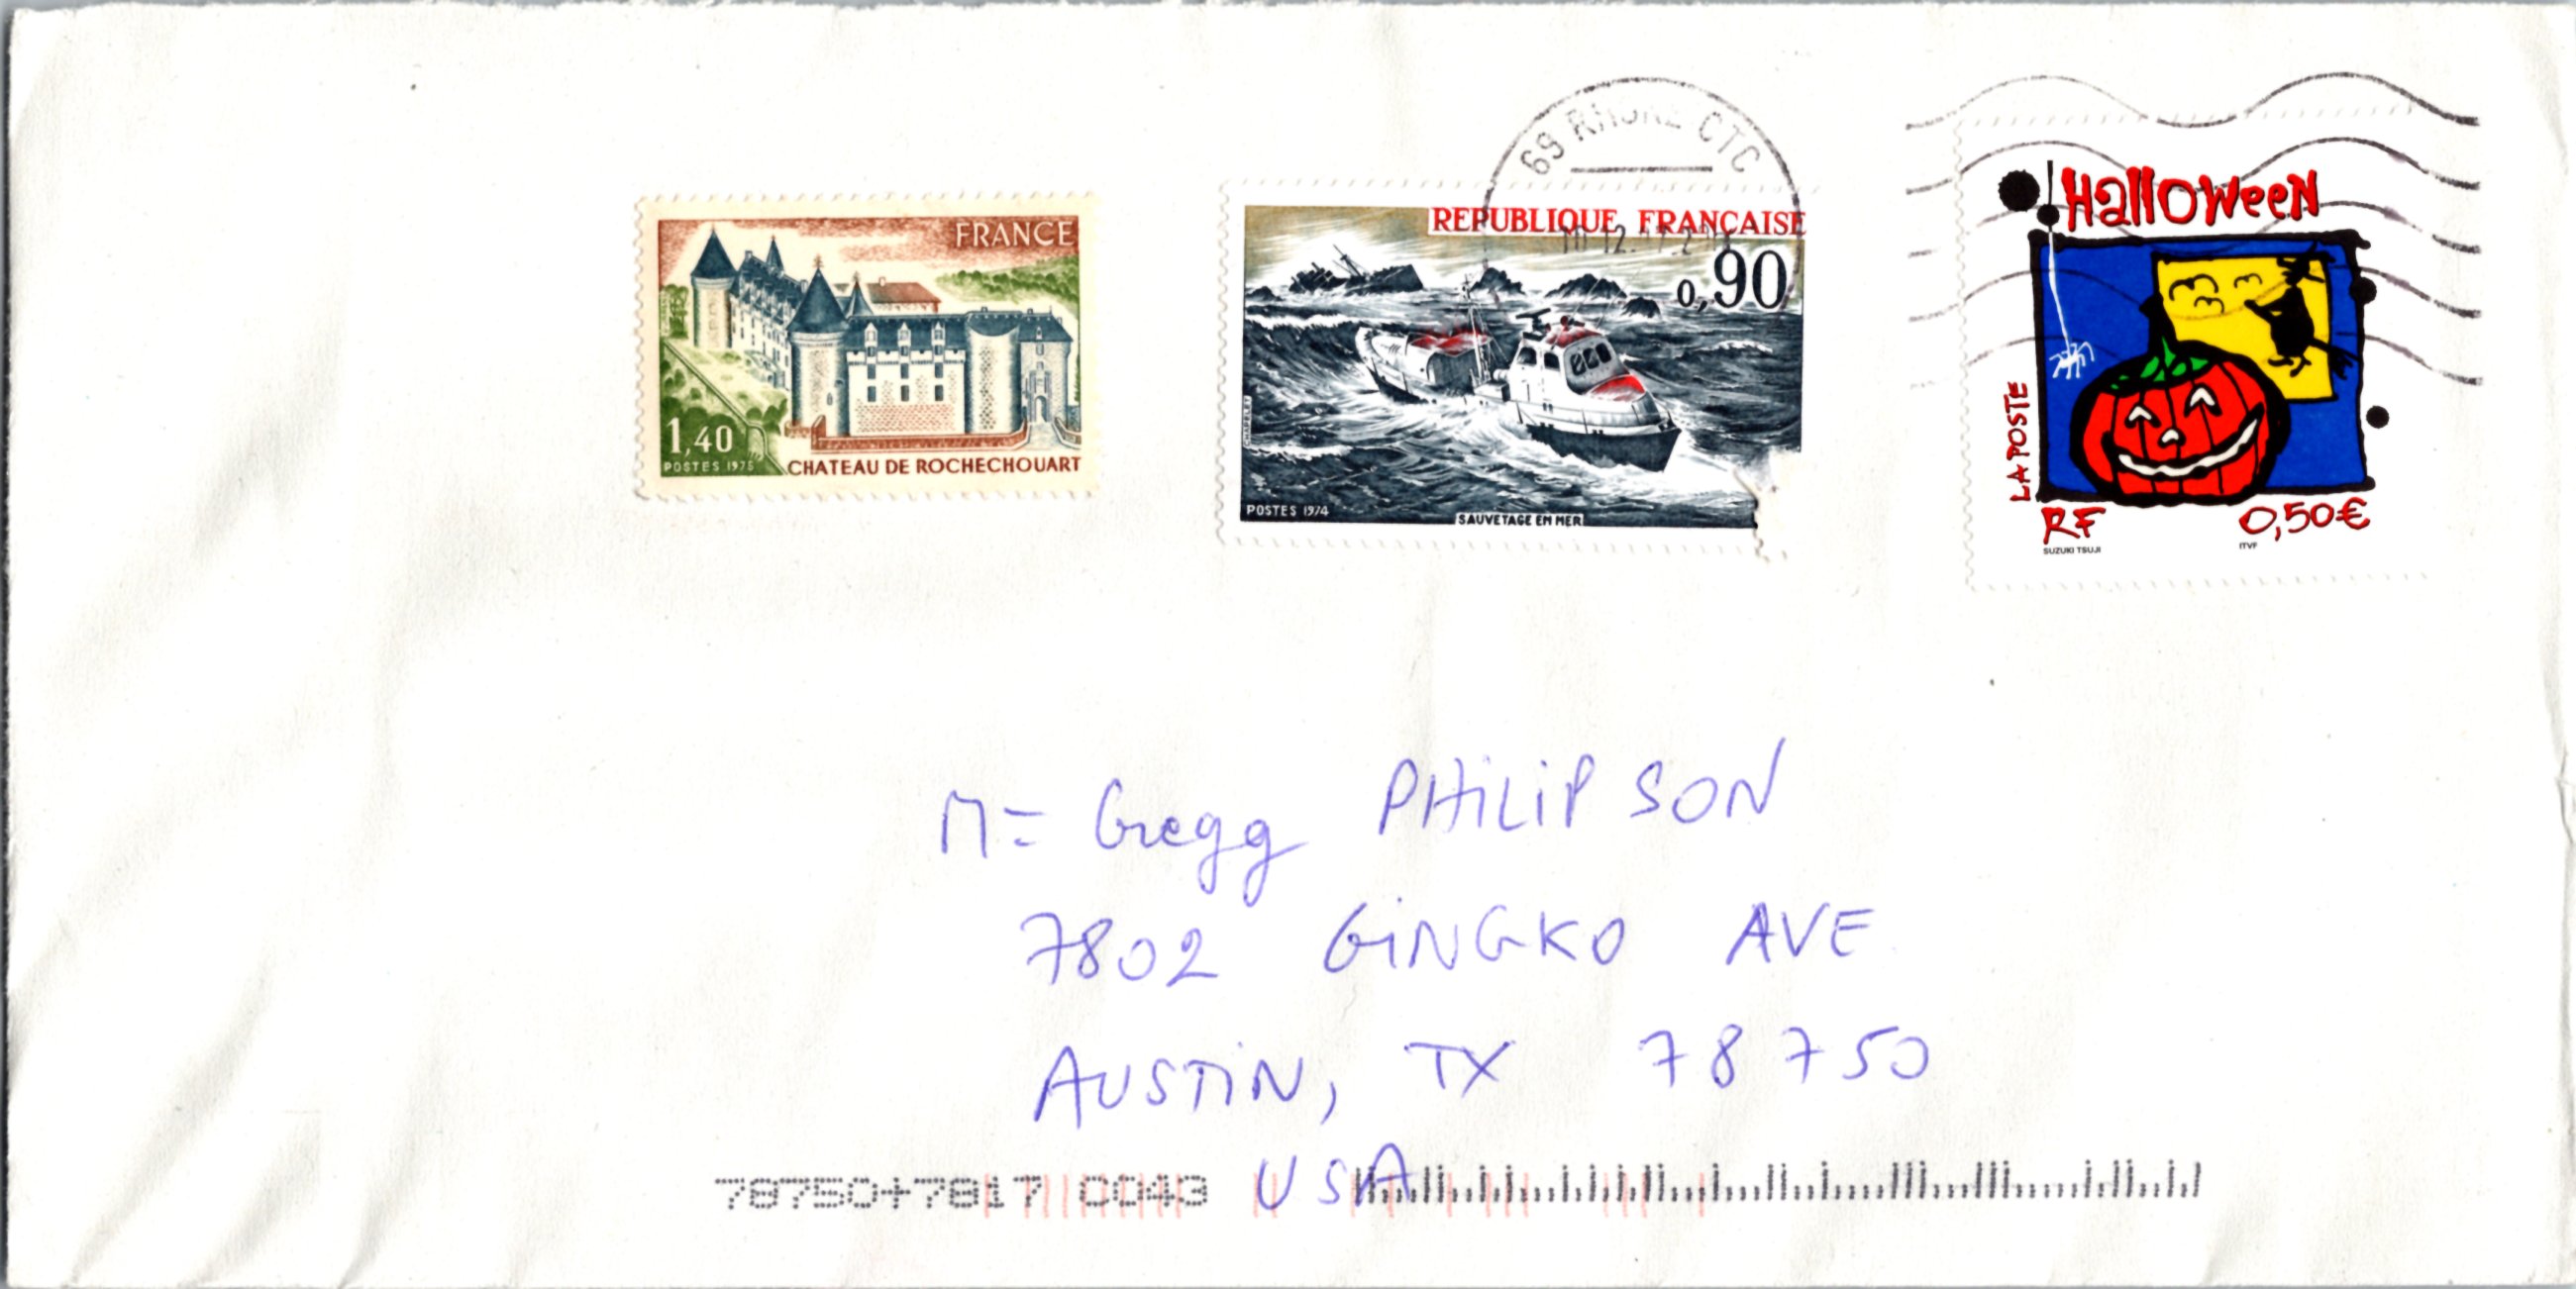 FRANCE
1,40
POSTES 1975
CHATEAU DE ROCHECHOUART
69 RHONE CTC
REPUBLIQUE FRANÇAISE
0,90
POSTES 1974
SAUVETAGE EN MER
Halloween
LA POSTE
RF
0,50€
SUZUKI TSUJI
ITVF
Mr Gregg PHILIPSON
7802 GINGKO AVE
AUSTIN, TX 78750
USA
78750+7817 0043